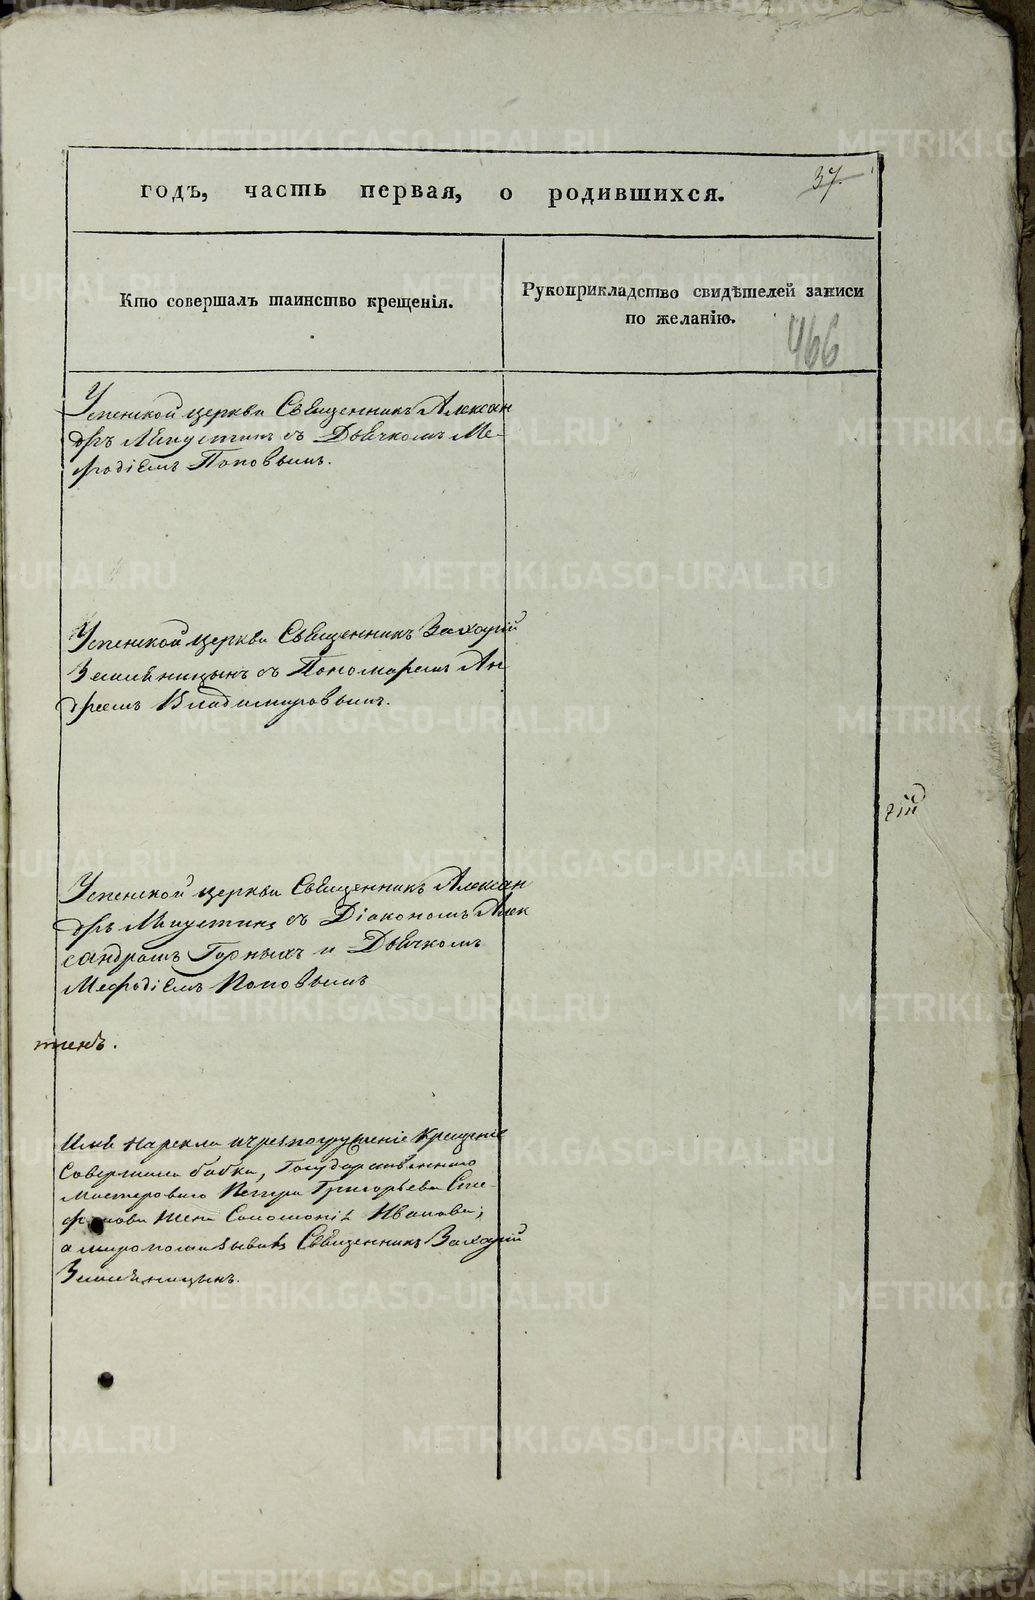 годъ, часть первая, о родившихся.
37.
Кто совершалъ таинство крещенія.
Рукоприкладство свидѣтелей записи
по желанію.
466
Успенской церкви Священникъ Алексан
дръ с Дьячкомъ Ме-
ѳодіемъ Поповымъ.
Успенской церкви Священникъ Захарій
Земляницынъ съ Пономаремъ Ан
дреемъ Владимировымъ.
гій
Успенской церкви Священникъ Алексан
дръ съ Діакономъ Алек
сандромъ Горныхъ и Дьячкомъ
Меѳодіемъ Поповымъ
тенъ.
Имя нарекла и чрезъ погруженіе Крещеніе
Совершила бабка, Государственнаго
Мастероваго Петра Григорьева Сте-
фанова жена Соломонія Иванова;
а миропомазывалъ Священникъ Захарій
Земляницынъ.
METRIKI.GASO-URAL.RU